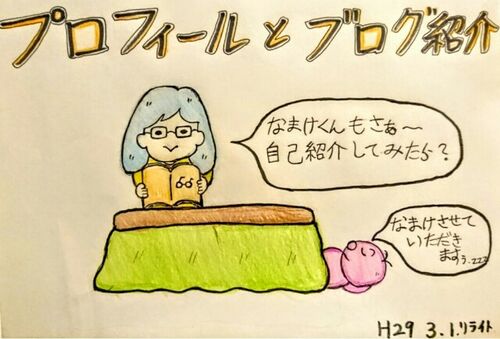 プロフィールとブログ紹介
なまけくんもさぁ〜
自己紹介してみたら?
なまけさせて
いただき
ますぅ.zzz
H29 3.1.リライト